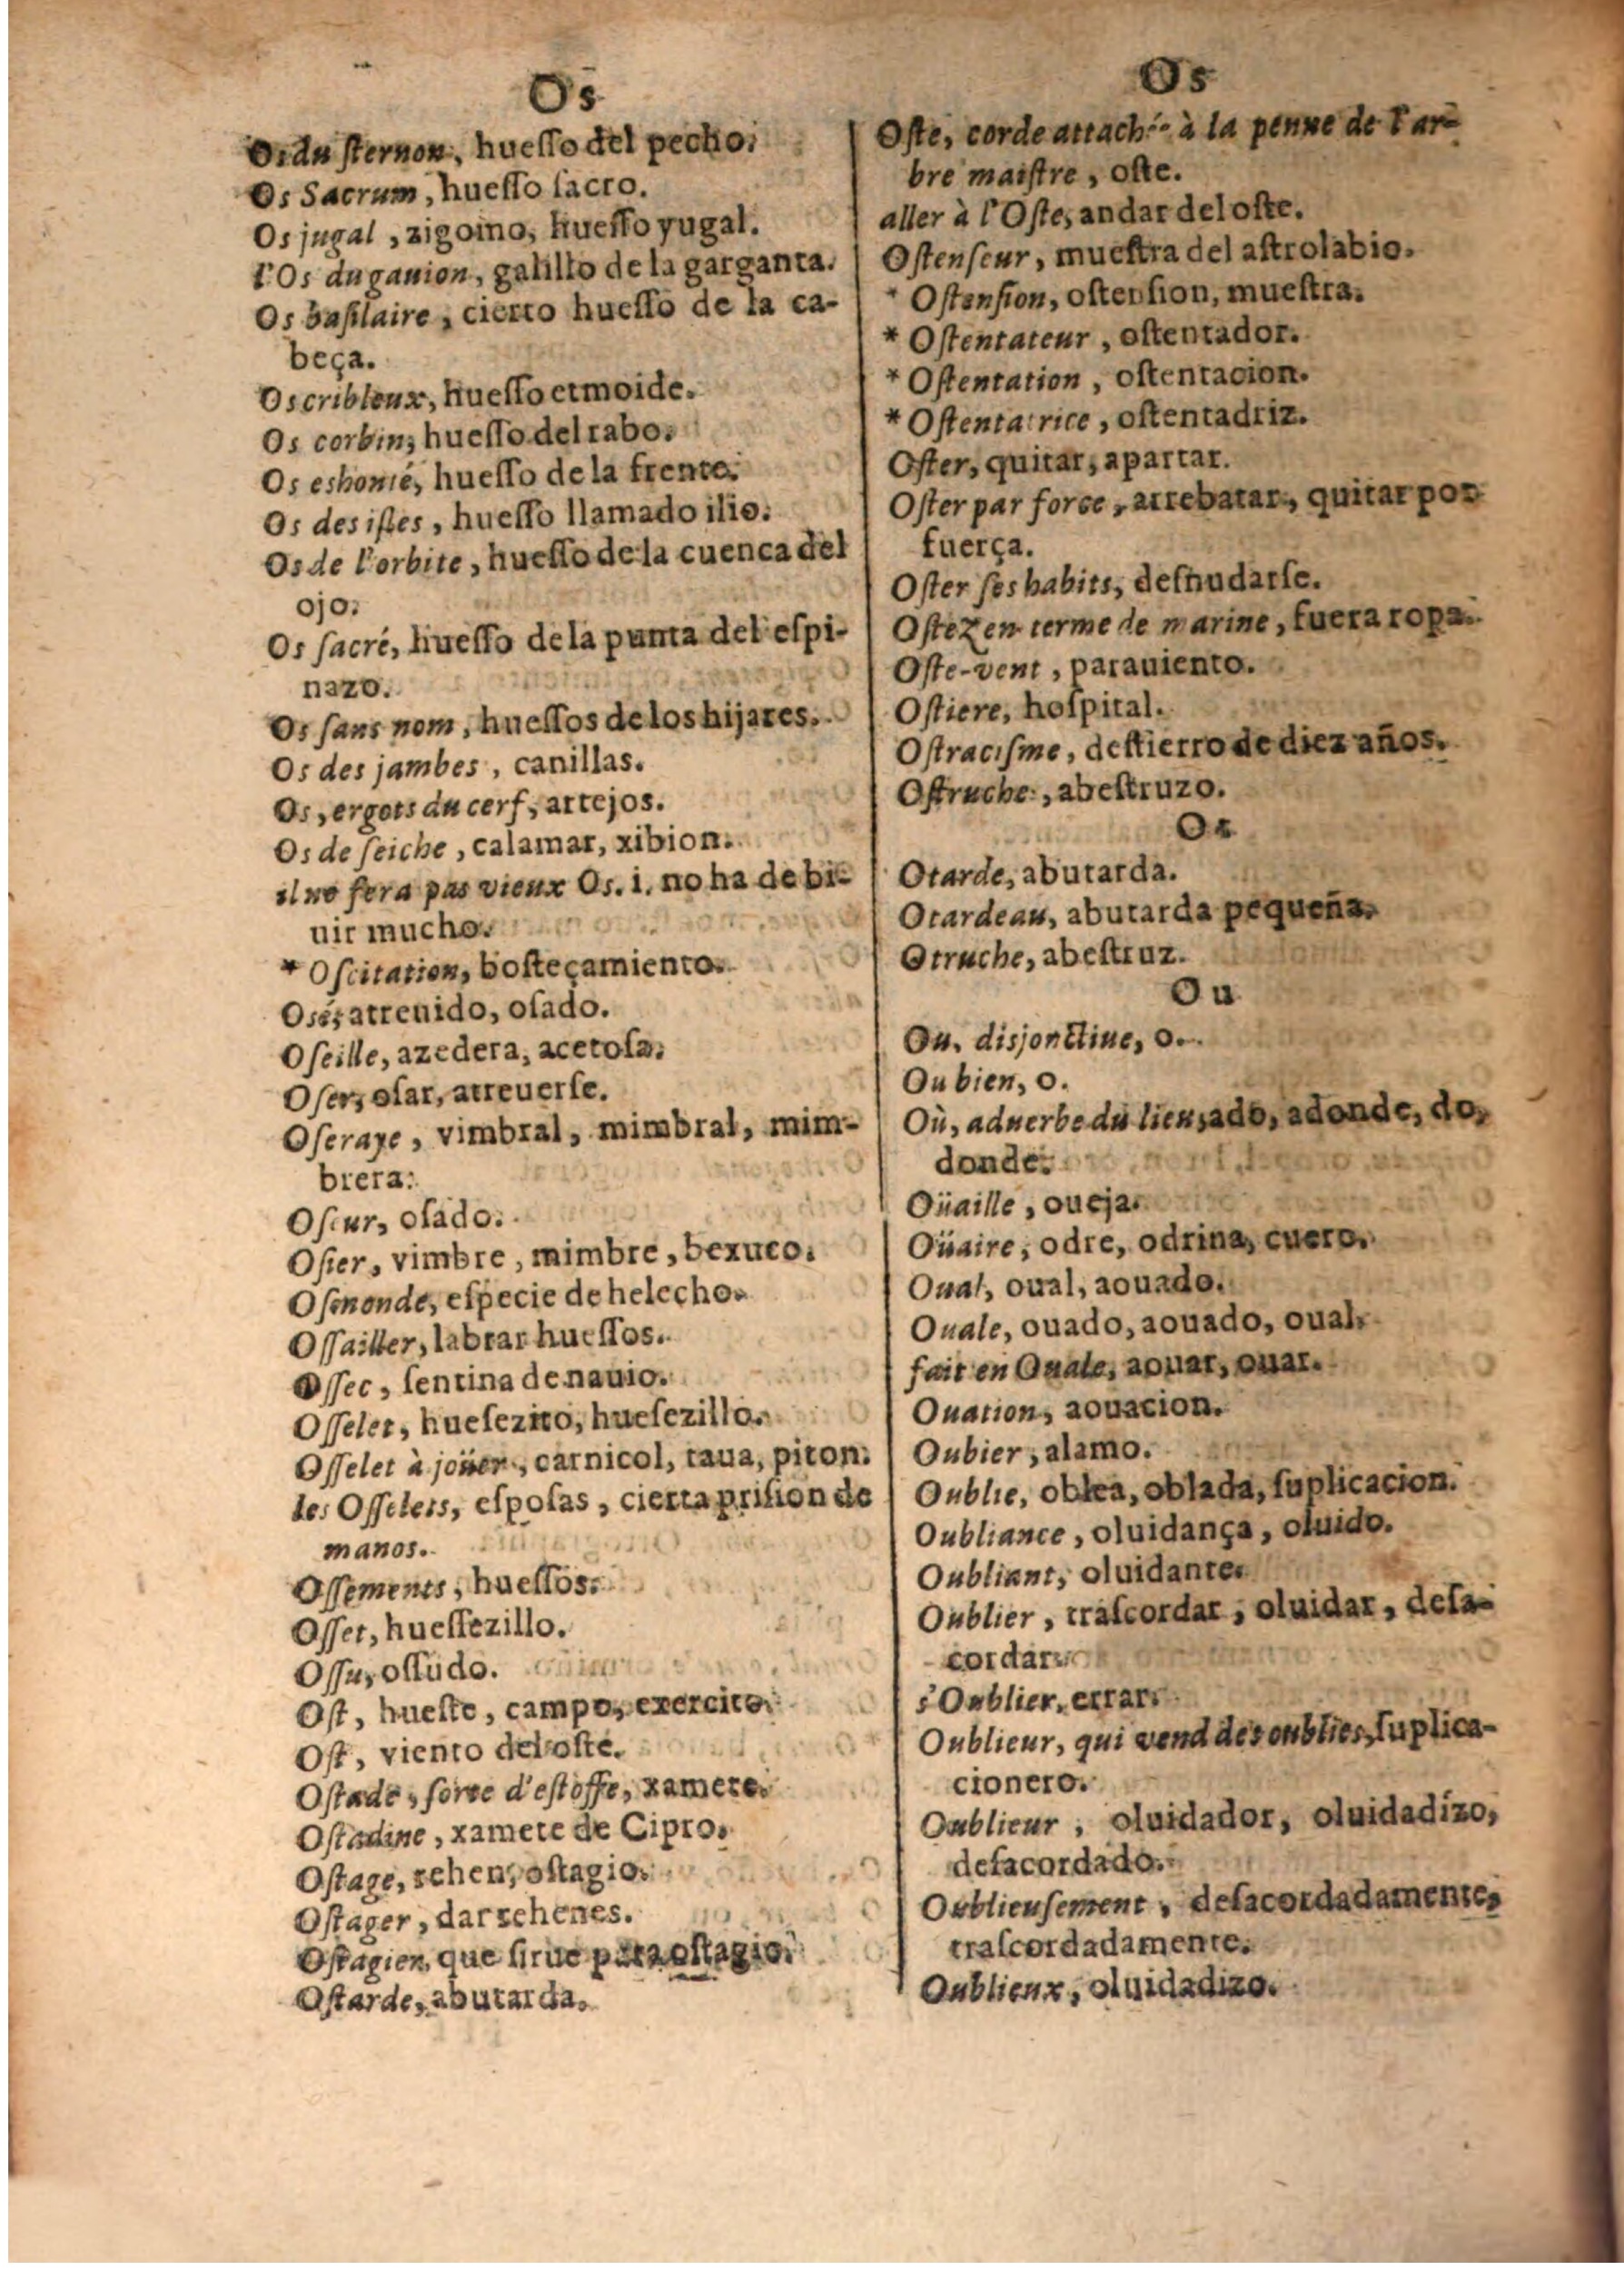 Os
Os du ſternon, hueſſo del pecho.
Os Sacrum, hueſſo ſacro.
Os jugal, zigomo, hueſſo yugal.
l'Os du gauion, galillo de la garganta.
Os baſilaire, cierto hueſſo de la ca-
beça.
Os cribleux, hueſſo etmoide.
Os corbin, hueſſo del rabo.
Os eshonté, hueſſo de la frente.
Os des iſles, hueſſo llamado ilio.
Os de l'orbite, hueſſo de la cuenca del
ojo.
Os ſacré, hueſſo de la punta del eſpi-
nazo.
Os ſans nom, hueſſos de los hijares.
Os des jambes, canillas.
Os, ergots du cerf, artejos.
Os de ſeiche, calamar, xibion.
il ne fera pas vieux Os. i. no ha de bi-
uir mucho.
* Oſcitation, boſteçamiento.
Osé, atreuido, oſado.
Oſeille, azedera, acetoſa.
Oſer, oſar, atreuerſe.
Oſeraye, vimbral, mimbral, mim-
brera.
Oſeur, oſado.
Oſier, vimbre, mimbre, bexuco.
Oſmonde, eſpecie de helecho.
Oſſailler, labrar hueſſos.
Oſſec, ſentina de nauio.
Oſſelet, hueſezito, hueſezillo.
Oſſelet à joüer, carnicol, taua, piton.
les Oſſelets, eſpoſas, cierta priſion de
manos.
Oſſements, hueſſos.
Oſſet, hueſſezillo.
Oſſu, oſſudo.
Oſt, hueſte, campo, exercito.
Oſt, viento del oſte.
Oſtade, ſorte d'eſtoffe, xamete.
Oſtadine, xamete de Cipro.
Oſtage, rehen, oſtagio.
Oſtager, dar rehenes.
Oſtagien, que ſirue para oſtagio.
Oſtarde, abutarda.
Os
Oſte, corde attachée à la penne de l'ar-
bre maiſtre, oſte.
aller à l'Oſte, andar del oſte.
Oſtenſeur, mueſtra del aſtrolabio.
* Oſtenſion, oſtenſion, mueſtra.
* Oſtentateur, oſtentador.
* Oſtentation, oſtentacion.
* Oſtentatrice, oſtentadriz.
Oſter, quitar, apartar.
Oſter par force, arrebatar, quitar por
fuerça.
Oſter ſes habits, deſnudarſe.
Oſtez en terme de marine, fuera ropa.
Oſte-vent, parauiento.
Oſtiere, hoſpital.
Oſtraciſme, deſtierro de diez años.
Oſtruche, abeſtruzo.
Ot
Otarde, abutarda.
Otardeau, abutarda pequeña.
Otruche, abeſtruz.
Ou
Ou, disjonctiue, o.
Ou bien, o.
Où, aduerbe du lieu, ado, adonde, do,
donde.
Oüaille, oueja.
Oüaire, odre, odrina, cuero.
Oual, oual, aouado.
Ouale, ouado, aouado, oual.
fait en Ouale, aouar, ouar.
Ouation, aouacion.
Oubier, alamo.
Oublie, oblea, oblada, ſuplicacion.
Oubliance, oluidança, oluido.
Oubliant, oluidante.
Oublier, traſcordar, oluidar, deſa-
cordar.
s'Oublier, errar.
Oublieur, qui vend des oublies, ſuplica-
cionero.
Oublieur, oluidador, oluidadizo,
deſacordado.
Oublieuſement, deſacordadamente,
traſcordadamente.
Oublieux, oluidadizo.